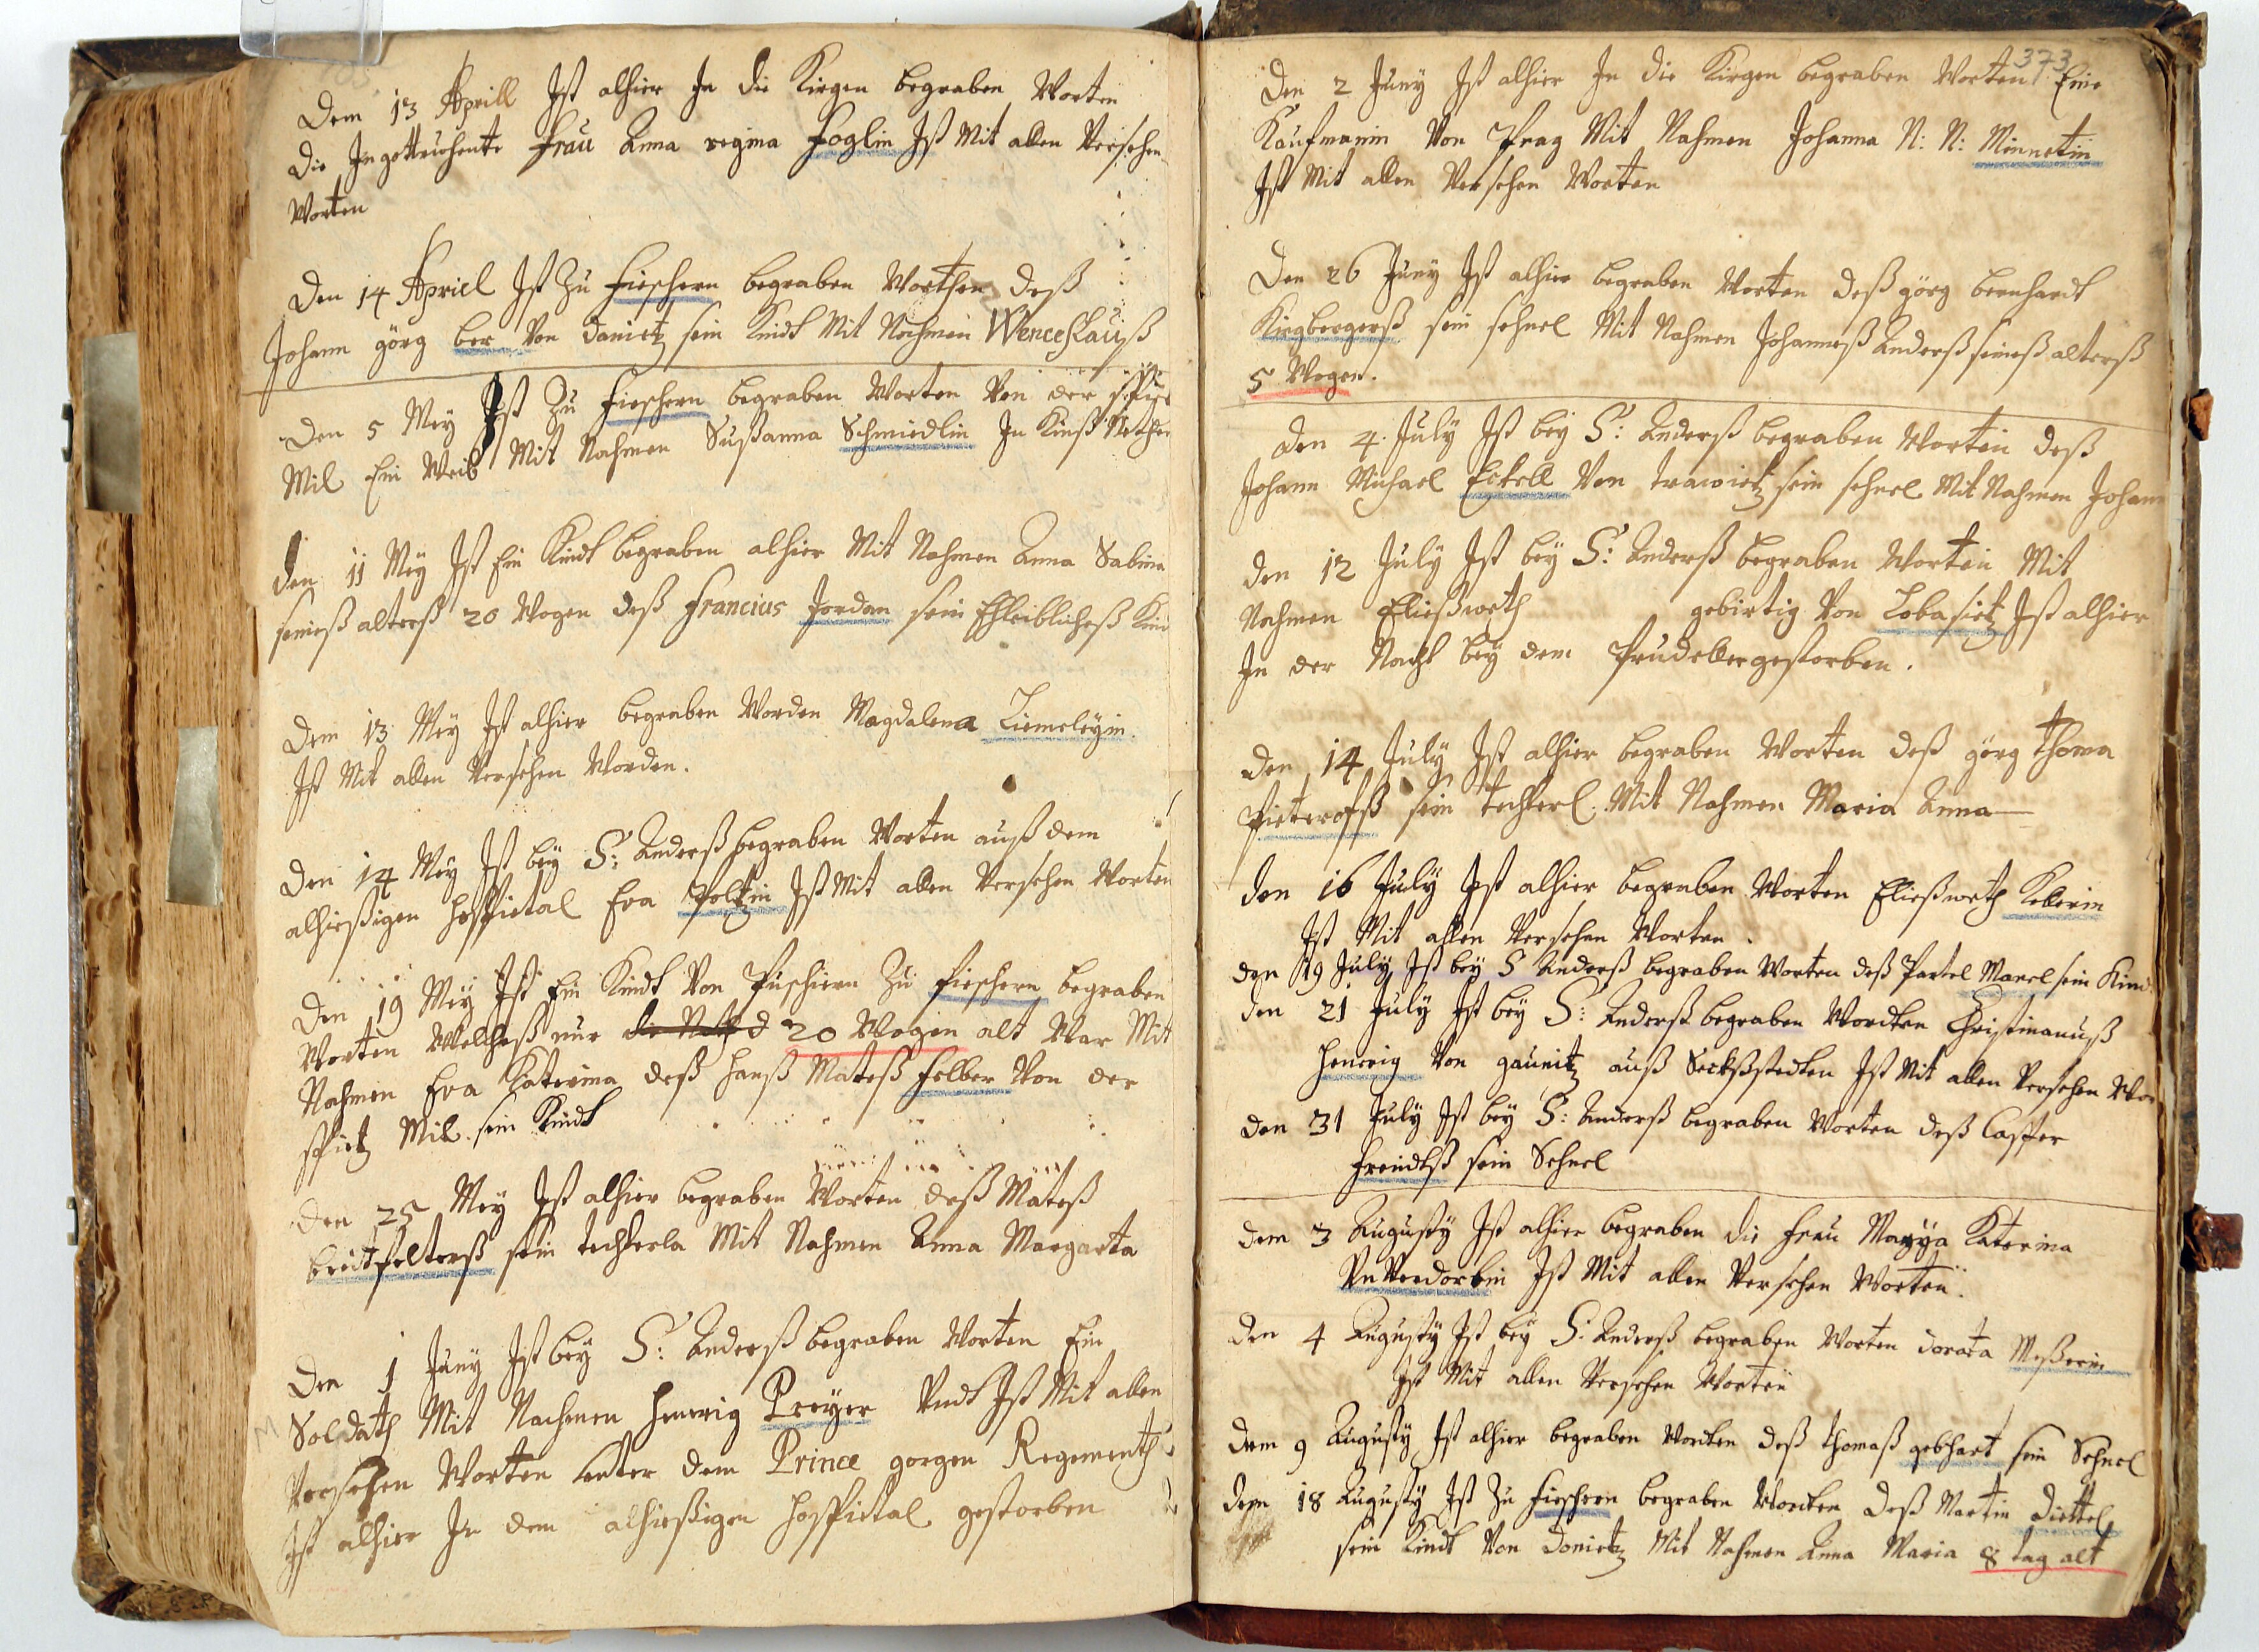 Dem 13 Aprill Ist alhier In die Kirgen begraben Worten
Die In gottruhente Frau Anna regina Foglin Ist Mit allen Versehen
Worten
Den 14 Apriel Ist Zu Fieschern begraben Worthen deß
Johann görg ber Von Danietz sein Kindt Mit Nahmen Wenceslauß
Den 5 Mey Ist Zu Fieschern begraben Worten Von der
Mil Ein Weib Mit Nahmen Sußanna Schmiedlin In Kinß Nethen
Den 11 Mey Ist Ein Kindt begraben alhier Mit Nahmen Anna Sabina
seineß alterß 20 Wogen deß Francius Jordan sein Ehleiblicheß Kin
Dem 13 Mey Ist alhier begraben Worden Magdalena Ziemeleyin
Ist Mit allen Versehen Worden.
Den 14 Mey Ist bey S: Anderß begraben Worten auß dem
alhießigen hoschpietal Eva Poltzin Ist Mit allen Versehen Worten
Den 19 Mey Ist Ein Kindt Von Puschiern Zu Fieschern begraben
Worten Welcheß nur 20 Wogen alt War Mit
Nahmen Eva Katerina deß hanß Mateß Felber Von der
Spietz Mil sein Kindt
Den 25 Mey Ist alhier begraben Worten deß Mateß
breitfelterß sein techterla Mit Nahmen Anna Margarta
Den 1 Juny Ist bey S: Anderß begraben Worten Ein
Soldath Mit Nachmen henrig Preyer Vndt Ist Mit allen
Versehen Worten Unter dem Prince gorgen Regementh
Ist alhier In dem alhießigen hoschpictal gestorben
373
Den 2 Juny Ist alhier In die Kirgen begraben Worten Eine
Kaufmanin Von Prag Mit Nahmen Johanna N: N: Minnetin
Ist Mit allen Versehen Worten
Den 26 Juny Ist alhier begraben Worten deß görg bernhardt
Kirgbergerß sein sehnel Mit Nahmen Johanneß Anderß seineß alterß
5 Wogen.
Den 4 July Ist bey S: Anderß begraben Worten deß
Johann Michael Eckell Von trawietz sein sehnel Mit Nahmen Johann
Den 12 July Ist bey S: Anderß begraben Worten Mit
Nahmen Eließweth gebirtig Von Lobasietz Ist alhier
In der Nacht bey dem Prudeller gestorben.
Den 14 July Ist alhier begraben Worten deß görg thoma
Pieterofß sein techterl Mit Nahmen Maria Anna
Den 16 July Ist alhier begraben Worten Eließweth Kelerin
Ist Mit allen Versehen Worten.
den 19 July Ist bey S Anderß begraben Worten deß Partel Marel sein Kin
Den 21 July Ist bey S: Anderß begraben Wordten Christinanuß
henrig Von gaunitz auß Seckßstedten Ist Mit allen Versehen Wor
Den 31 July Ist bey S: Anderß begraben Worten deß Casper
Freindtß sein Sehnel
Dem 3 Augusty Ist alhier begraben die Frau Mayya Katerina
VnVerdorbin Ist Mit allen Versehen Worten.
Den 4 Augusty Ist bey S: Anderß begraben Worten Dorata Meßerin
Ist Mit allen Versehen Worten
Dem 9 Augusty Ist alhier begraben Wordten deß thomaß gebhart sein Sehnel
Dem 18 Augusty Ist Zu Fieschern begraben Wordten deß Martin Diettel
sein Kindt Von Donietz Mit Nahmen Anna Maria 8 tag alt